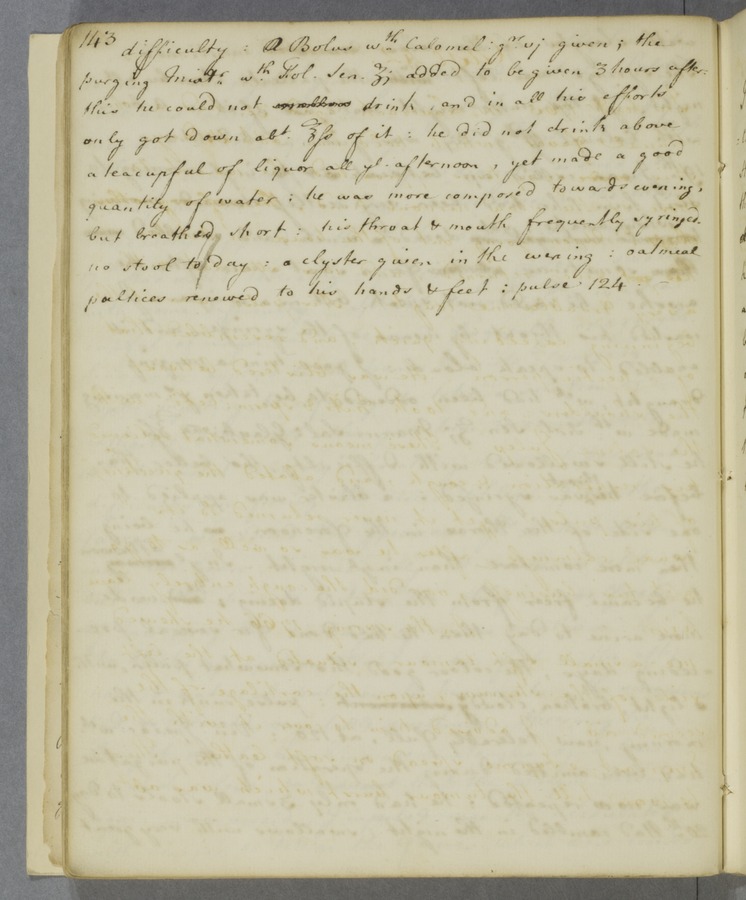 143
difficulty : A Bolus wth Calomel : gr. vj given ; the
purging Mixtr. wth Fol. Sen. ʒj added to be given 3 hours after.
this he could not drink , and in all his efforts
only got down abt. ℥ss of it : he did not drink above
a teacupful of liquor all ye. afternoon , yet made a good
quantity of water : he was more composed towards evening,
but breathed short : his throat & mouth frequently syringed.
no stool to day : a clyster given in the evening : oatmeal
poltices renewed to his hands & feet : pulse 124 . –